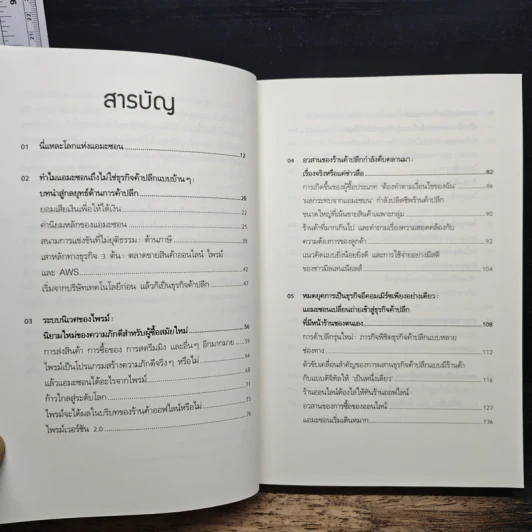 สารบัญ
01 นี่แหละโลกแห่งแอมะซอน 12
02 ทำไมแอมะซอนถึงไม่ใช่ธุรกิจค้าปลีกแบบบ้านๆ :
บทนำสู่กลยุทธ์ด้านการค้าปลีก 20
ยอมเสียเงินเพื่อให้ได้เงิน 22
ค่านิยมหลักของแอมะซอน 25
สนามการแข่งขันที่ไม่ยุติธรรม : ด้านภาษี 38
เสาหลักทางธุรกิจ 3 ต้น : ตลาดขายสินค้าออนไลน์ ไพรม์
และ AWS 42
เริ่มจากบริษัทเทคโนโลยีก่อน แล้วก็เป็นธุรกิจค้าปลีก 47
03 ระบบนิเวศของไพรม์ :
นิยามใหม่ของความภักดีสำหรับผู้ซื้อสมัยใหม่ 56
การส่งสินค้า การซื้อของ การสตรีมมิง และอื่นๆ อีกมากมาย 59
ไพรม์เป็นโปรแกรมสร้างความภักดีจริงๆ หรือไม่
แล้วแอมะซอนได้อะไรจากไพรม์
ก้าวไกลสู่ระดับโลก
ไพรม์จะได้ผลในบริบทของร้านค้าออฟไลน์หรือไม่
ไพรม์เวอร์ชัน 2.0
04 อวสานของร้านค้าปลีกกำลังคืบคลานมา :
เรื่องจริงหรือแค่ข่าวลือ 82
การเกิดขึ้นของผู้ซื้อประเภท 'ต้องทำตามเงื่อนไขของฉัน'
'ผลกระทบจากแอมะซอน' กำลังปลิดชีพร้านค้าปลีก
ขนาดใหญ่ที่เน้นขายสินค้าเฉพาะกลุ่ม 90
ร้านค้าที่มากเกินไป และคำถามเรื่องความสอดคล้องกับ
ความต้องการของลูกค้า 92
แนวคิดแบบยิ่งน้อยยิ่งดี และการใช้จ่ายอย่างมีสติ
ของชาวมิลเลนเนียลส์ 104
05 หมดยุคการเป็นธุรกิจอีคอมเมิร์ซเพียงอย่างเดียว :
แอมะซอนเปลี่ยนถ่ายเข้าสู่ธุรกิจค้าปลีก
ที่มีหน้าร้านของตนเอง 108
การค้าปลีกรุ่นใหม่ : ภารกิจพิชิตธุรกิจค้าปลีกแบบหลาย
ช่องทาง 112
ตัวขับเคลื่อนสำคัญของการผสานธุรกิจค้าปลีกแบบมีร้านค้า
กับแบบดิจิทัลให้ 'เป็นหนึ่งเดียว' 116
ร้านออนไลน์ต้องไล่ให้ทันร้านออฟไลน์ :
อวสานของการซื้อของออนไลน์ 127
แอมะซอนเริ่มเดินหมาก 136